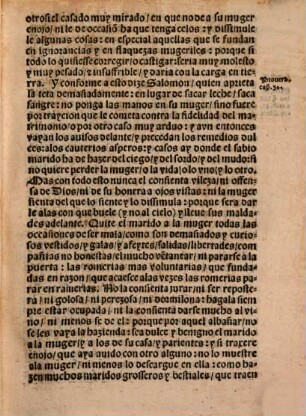 otrosi el casado muy mirado / en que no de a su muger
enojo / ni le de ocasiõ ba que tenga celos : y dissimule
le algunas cosas : en especial aquellas que se fundan
en ignorancias y en flaquezas mugeriles : porque si
todo lo quisiesse corregir / o castigar : seria muy molesto /
y muy pesado / z insufrible / y daria con la carga en tie
rra. Y conforme a esto dize Salomon / quien aprieta
la teta demasiadamente : en lugar de sacar leche / saca
sangre : no ponga las manos en su muger / sino fuere
por traycion que le cometa contra la fidelidad del ma
trimonio / o por otro caso muy arduo : y avn entonces
vayan los auisos delante / y precedan los remedios bul
ces : a los cauterios asperos : y casos ay donde el sabio
marido ha de hazer del ciego / y del sordo / y del mudo : si
no quiere perder la muger / o la vida / o lo vno / y lo otro.
Mas con todo esso nunca el consienta vileza / ni offen
sa de Dios / ni de su honrra a ojos vistas : ni la muger
sienta del que lo siente y lo dissimula : porque sera dar
le alas con que buele (y no al cielo) y lleue sus malda
des adelante. Quite el marido a la muger todas las
occasiones de ser mala / como son demasiados y curio
sos vestidos / y galas / y afeytes / salidas / libertades / com
pañias no honestas / el mucho vẽtanear / ni pararse a la
puerta : las romerias mas voluntarias / que funda
das en razon / que acaesce alas vezes las romerias pa
rar en ramerias. No la consienta jurar / ni ser reposte
ra / ni golosa / ni perezosa / ni de camilona : hagala siem
pre estar ocupada / ni la consienta darse mucho al vi
no / ni menos se de el : porque por aquel albañar / no
se les vaya la hazienda : sea dulce y benigno el marido
a la muger / y a los de su casa / y parientes : y si traxere
enojo / que aya auido con otro alguno : no lo muestre
ala muger / ni menos lo descargue en ella : como ha
zen muchos maridos grosseros y bestiales / que traen
Prouerb.
cap. 30.